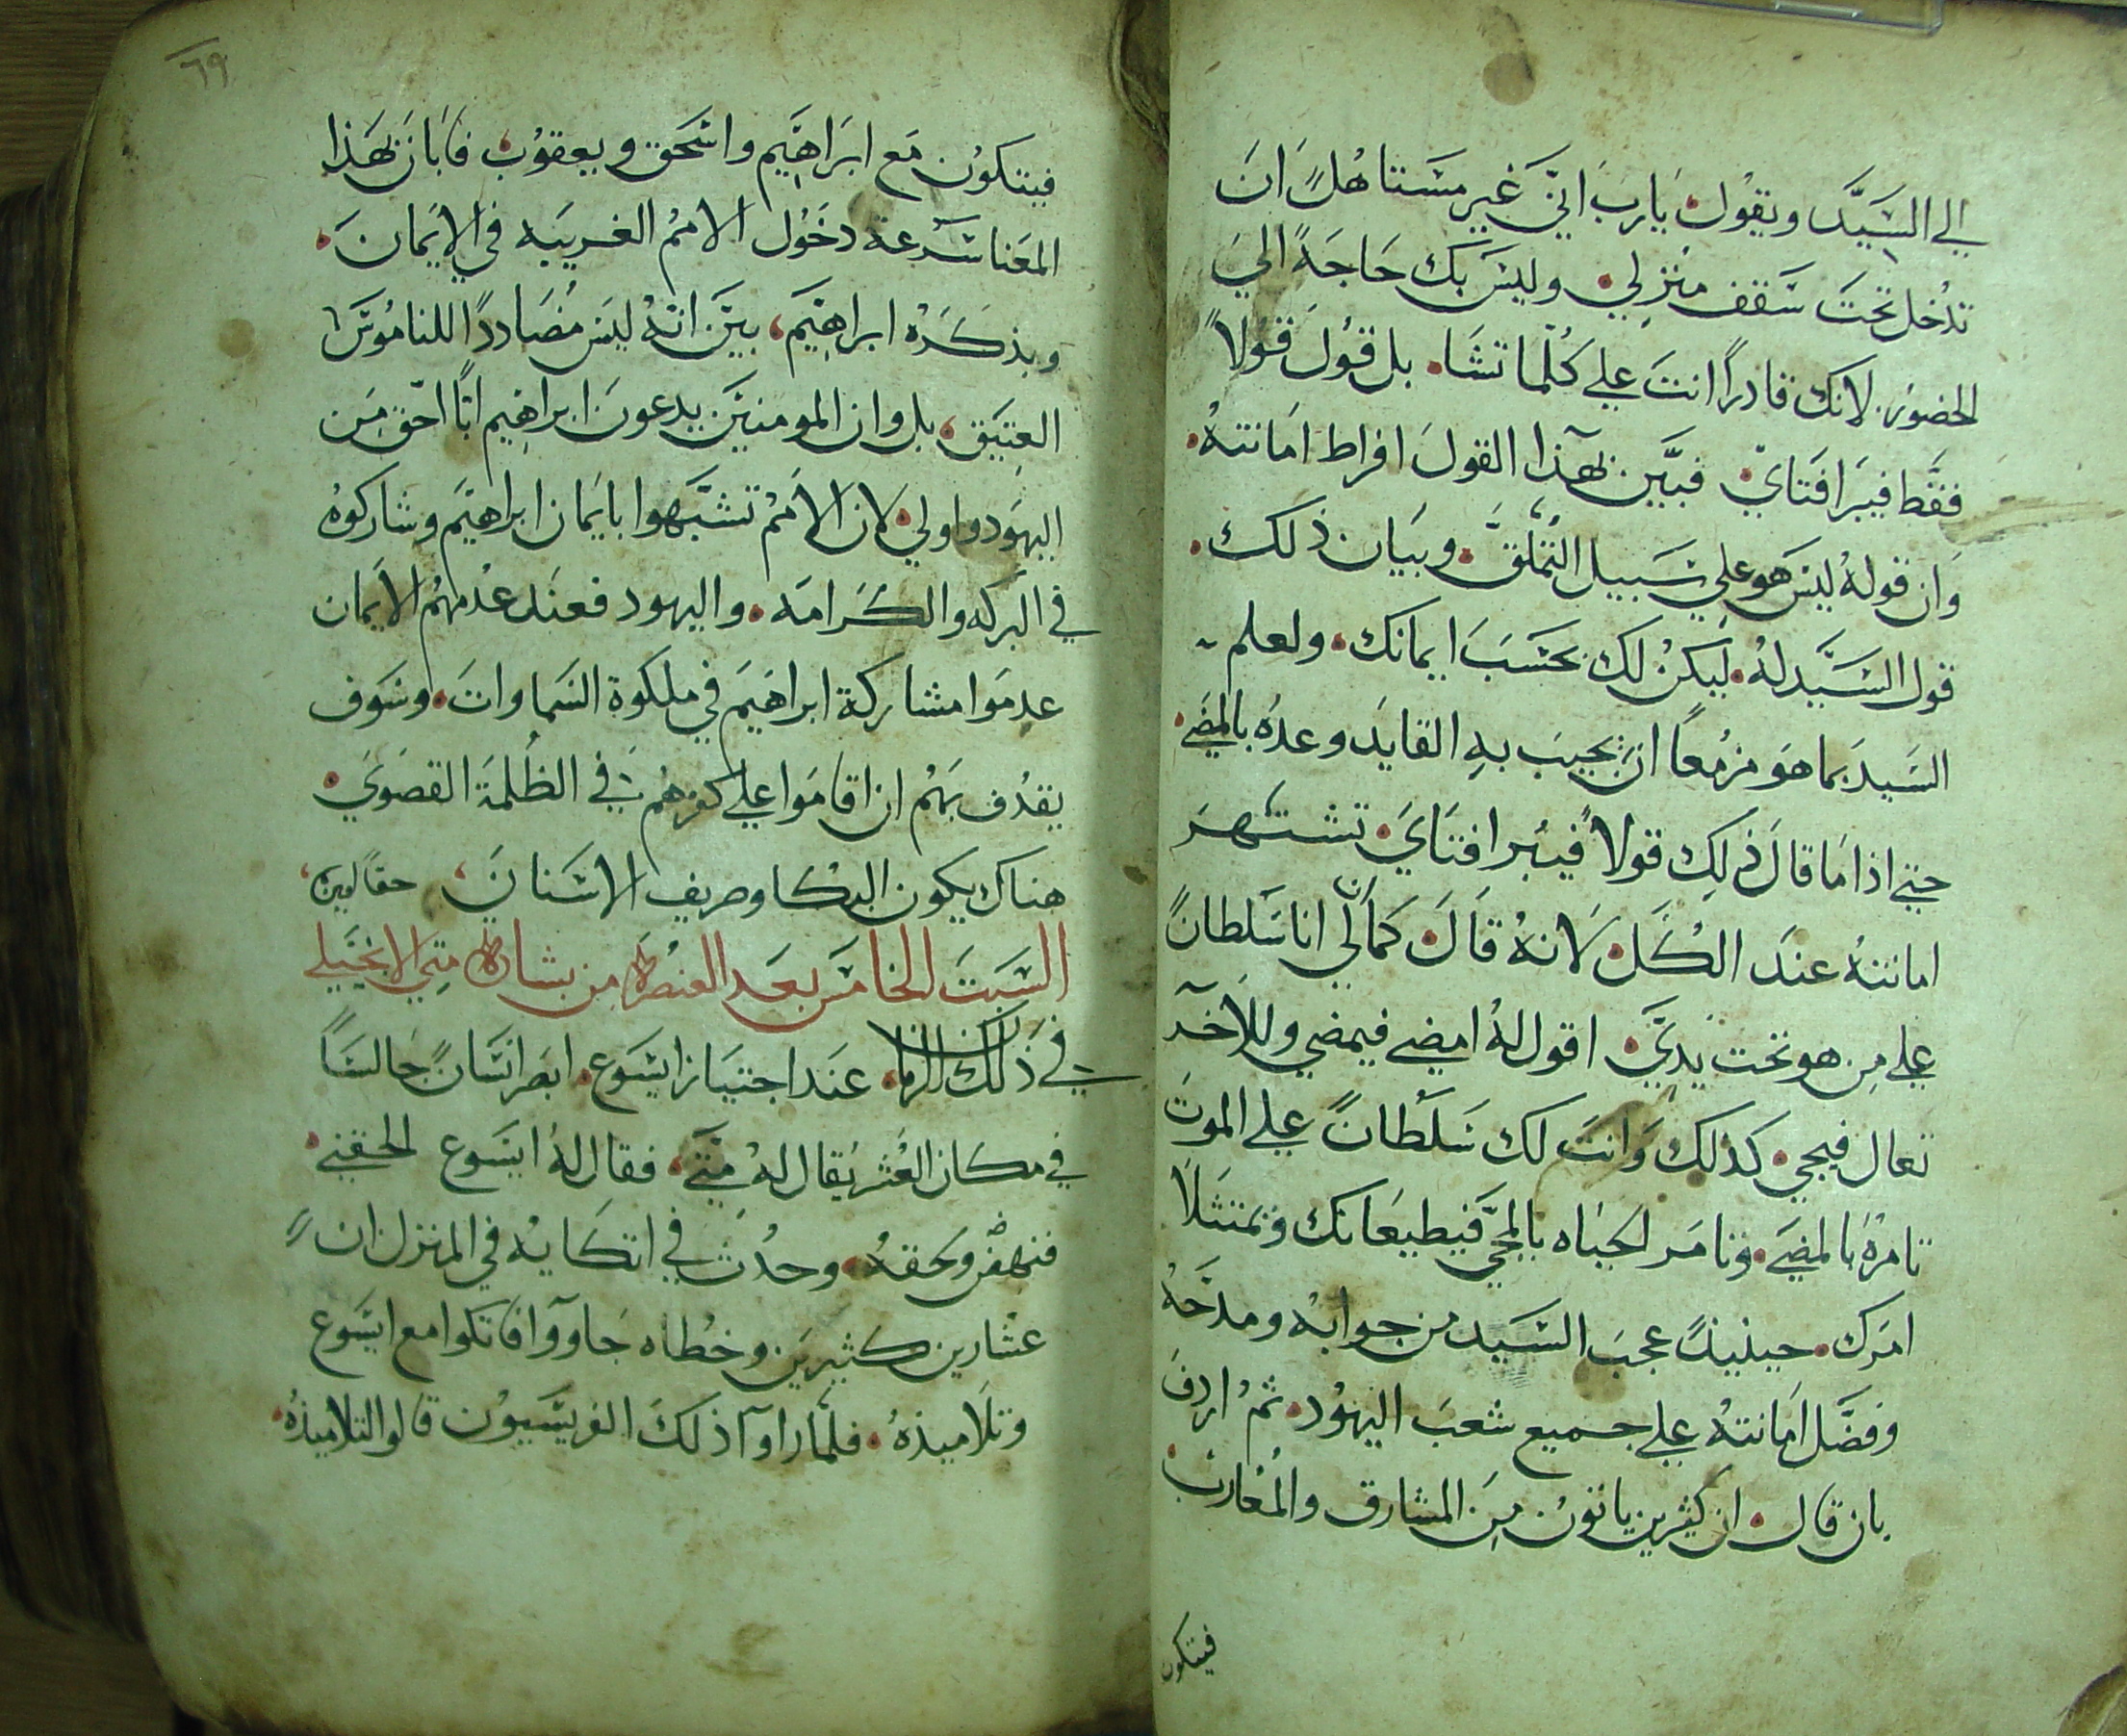 الي السَيَّد ويقول يارب اني غير مستاهلاً ان
تدخل تحت سقف منزلي وليس بك حاجةً الي
الحضور لانك قادراً انت علي كلما تشا بل قول قولاً
فقط فيبرا فتاي فبيَّن بهذا القول افراط امانته
وان قوله ليس هو علي سبيل التملق وبيان ذلك
قول السيَّد له ليكن لك بحسب ايمانك ولعلم
السيد بما هو مزمعاً ان يجيب به القايد وعده بالمضي
حتي اذا ما قال ذلك قولاً فيبرا فتاي تشتهر
امانته عند الكل لانه قال كما اني انا سلطاناً
علي من هو تحت يدي اقول له امضي فيمضي وللاخر
تعال فيجي كذلك وانت لك سلطاناً علي الموت
تامره بالمضي وتامر الحياه بالمجي فيطيعانك وتمتثلا
امرك حينيذٍ عجب السيد من جوابه ومدحه
وفضَّل امانته علي جميع شعب اليهود ثم اردف
بان قال ان كثيرين ياتون من المشارق والمغارب
فيتكون
٦٩
فيتكون مع ابراهيم واسحق ويعقوب فابان بهذا
المعنا سرعة دخول الامم الغريبه في الايمان
وبذكره ابراهيم بيَّن انه ليس مضادداً للناموس
العتيق بل وان المومنين يدعون ابراهيم اباً احق من
اليهود واولي لان الامم تشبهوا بايمان ابراهيم وشاركوه
في البركه والكرامه واليهود فعند عدمهم الايمان
عدموا مشاركة ابراهيم في ملكوة السماوات وسوف
يقدف بهم ان اقاموا علي كفرهم في الظلمة القصوي
هناك يكون البكا وصريف الاسنان حقاً امين
السبت الخامس بعد العنصره من بشارة متي الانجيلي
في ذلك الزمان عند اجتياز ايسوع ابصر انساناً جالساً
في مكان العشر يقال له متي فقال له ايسوع الحقني
فنهض ولحقه وحدث في اتكايه في المنزل ان
عشارين كثيرين وخطاه جاووا فاتكوا مع ايسوع
وتلاميذه فلما راوا ذلك الفريسيون قالوا لتلاميذه